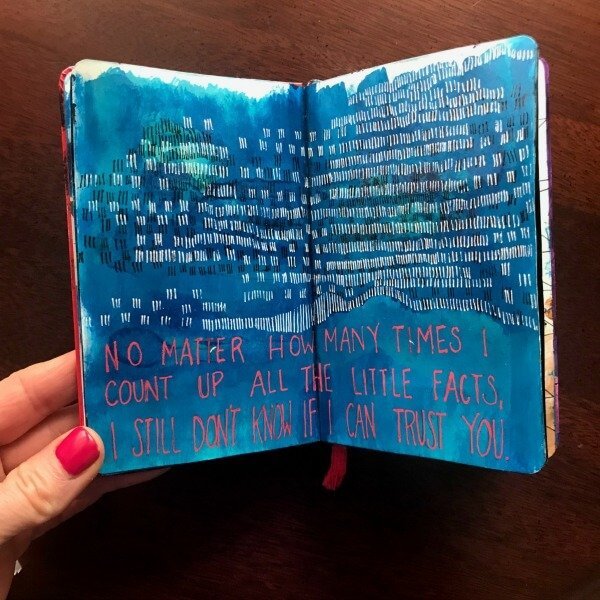 NO MATTER HOW MANY TIMES I
COUNT UP ALL THE LITTLE FACTS,
I STILL DON'T KNOW IF I CAN TRUST YOU.